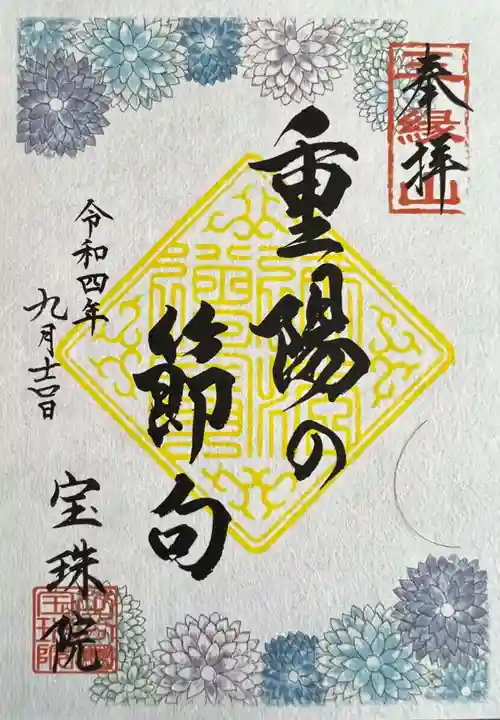 奉拝
三縁山
重陽の
節句
令和四年
九月十四日
宝珠院